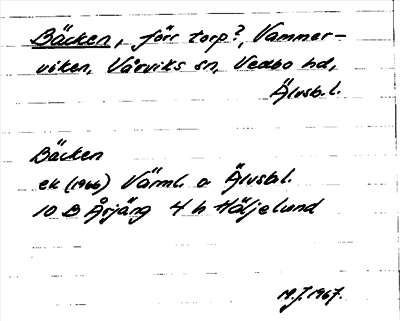 Bäcken, förr torp?, Vammer-
viken, Vårviks sn, Vedbo hd,
Älvsb.l.
Bäcken
ek (1966) Värml. o Älvsb.l.
10 B Årjäng 4 h Häljelund
M.J. 1967.